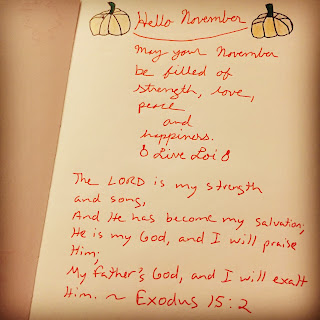 Hello November
May your November
be filled of
strength, love,
peace
and
happiness.
Live Loi
The LORD is my strength
and song,
And He has become my salvation;
He is my God, and I will praise
Him;
My father's God, and I will exalt
Him. ~ Exodus 15:2